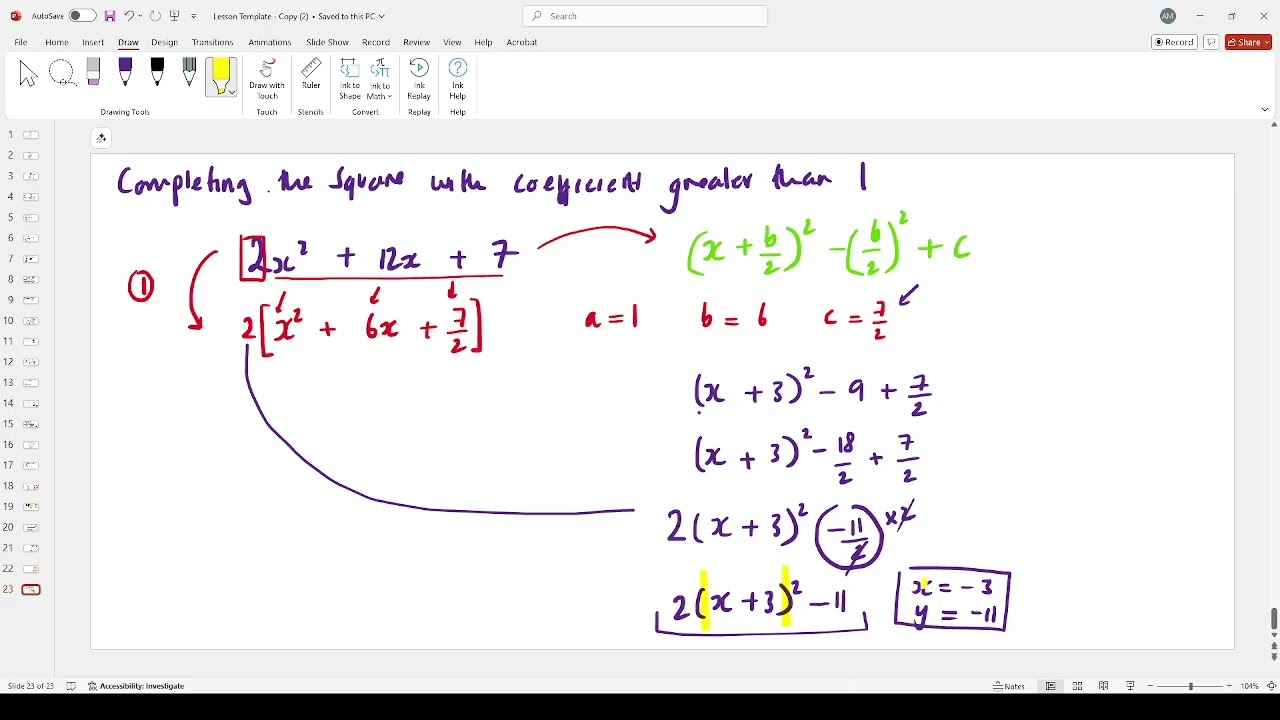 AutoSave Off Lesson Template - Copy (2) • Saved to this PC Search AM
File Home Insert Draw Design Transitions Animations Slide Show Record Review View Help Acrobat Record Share
Draw with Touch Ruler Ink to Shape Ink to Math Ink Replay Ink Help
Drawing Tools Touch Stencils Convert Replay Help
1
2
3
4
5
6
7
8
9
10
11
12
13
14
15
16
17
18
19
20
21
22
23
Completing the square with coefficient greater than 1
2x² + 12x + 7
(x + b/2)² - (b/2)² + c
①
2[x² + 6x + 7/2]
a = 1 b = 6 c = 7/2
(x + 3)² - 9 + 7/2
(x + 3)² - 18/2 + 7/2
2(x + 3)² -11/2 ×2
2(x + 3)² - 11
x = -3
y = -11
Slide 23 of 23 Accessibility: Investigate Notes 104%